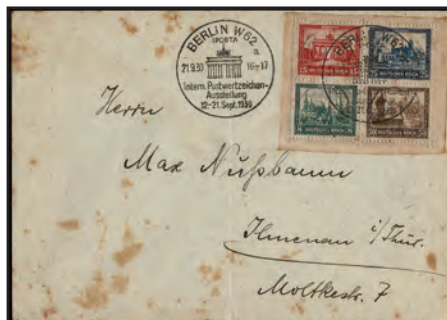 BERLIN W62
IPOSTA
a
21.9.30 16-17
Intern. Postwertzeichen-
Ausstellung
12.-21. Sept. 1930
BERLIN W62
15 DEUTSCHES REICH
25 DEUTSCHES REICH
8 DEUTSCHES REICH
50 DEUTSCHES REICH
Herrn
Max Nußbaum
Ilmenau i/Thür.
Moltkestr. 7